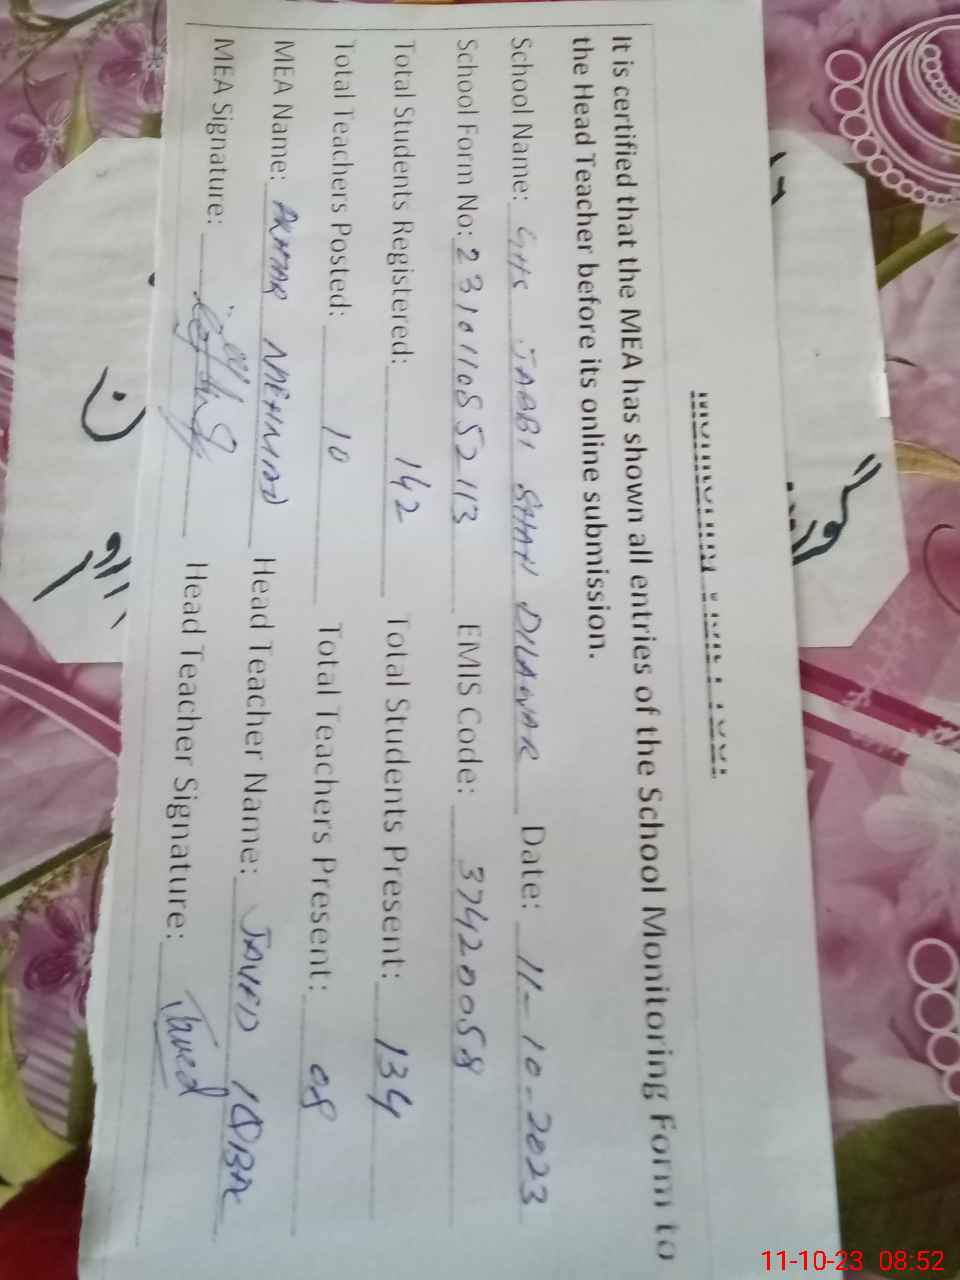 It is certified that the MEA has shown all entries of the School Monitoring Form to
the Head Teacher before its online submission.
School Name: GHS JABBI SHAH DILAWAR Date: 11-10-2023
School Form No: 2310110852113 EMIS Code: 37420058
Total Students Registered: 142 Total Students Present: 134
Total Teachers Posted: 10 Total Teachers Present: 08
MEA Name: AKHTAR MEHMOOD Head Teacher Name: JAVED IQBAL
MEA Signature: Head Teacher Signature: Javed
11-10-23 08:52